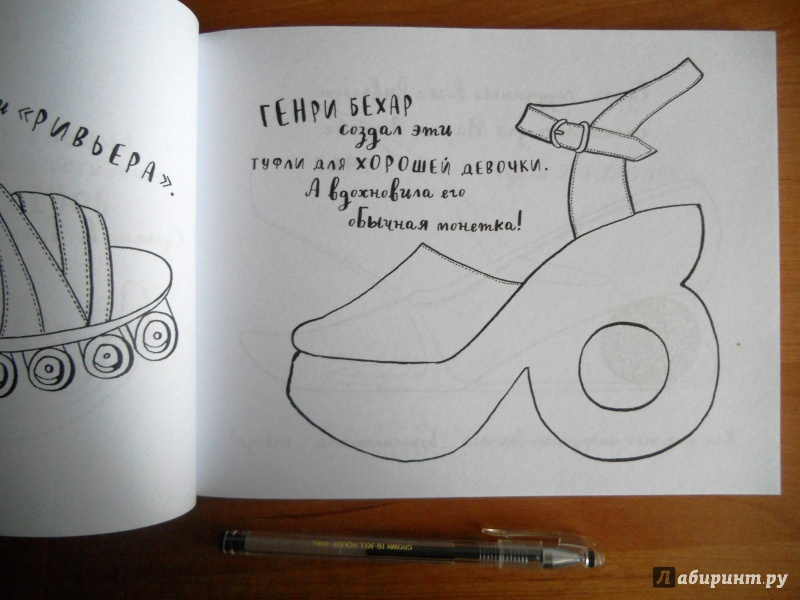 и «РИВЬЕРА».
ГЕНРИ БЕХАР
создал эти
ТУФЛИ ДЛЯ ХОРОШЕЙ ДЕВОЧКИ.
А вдохновила его
обычная монетка!
CROWN HI-JELL
Лабиринт.ру